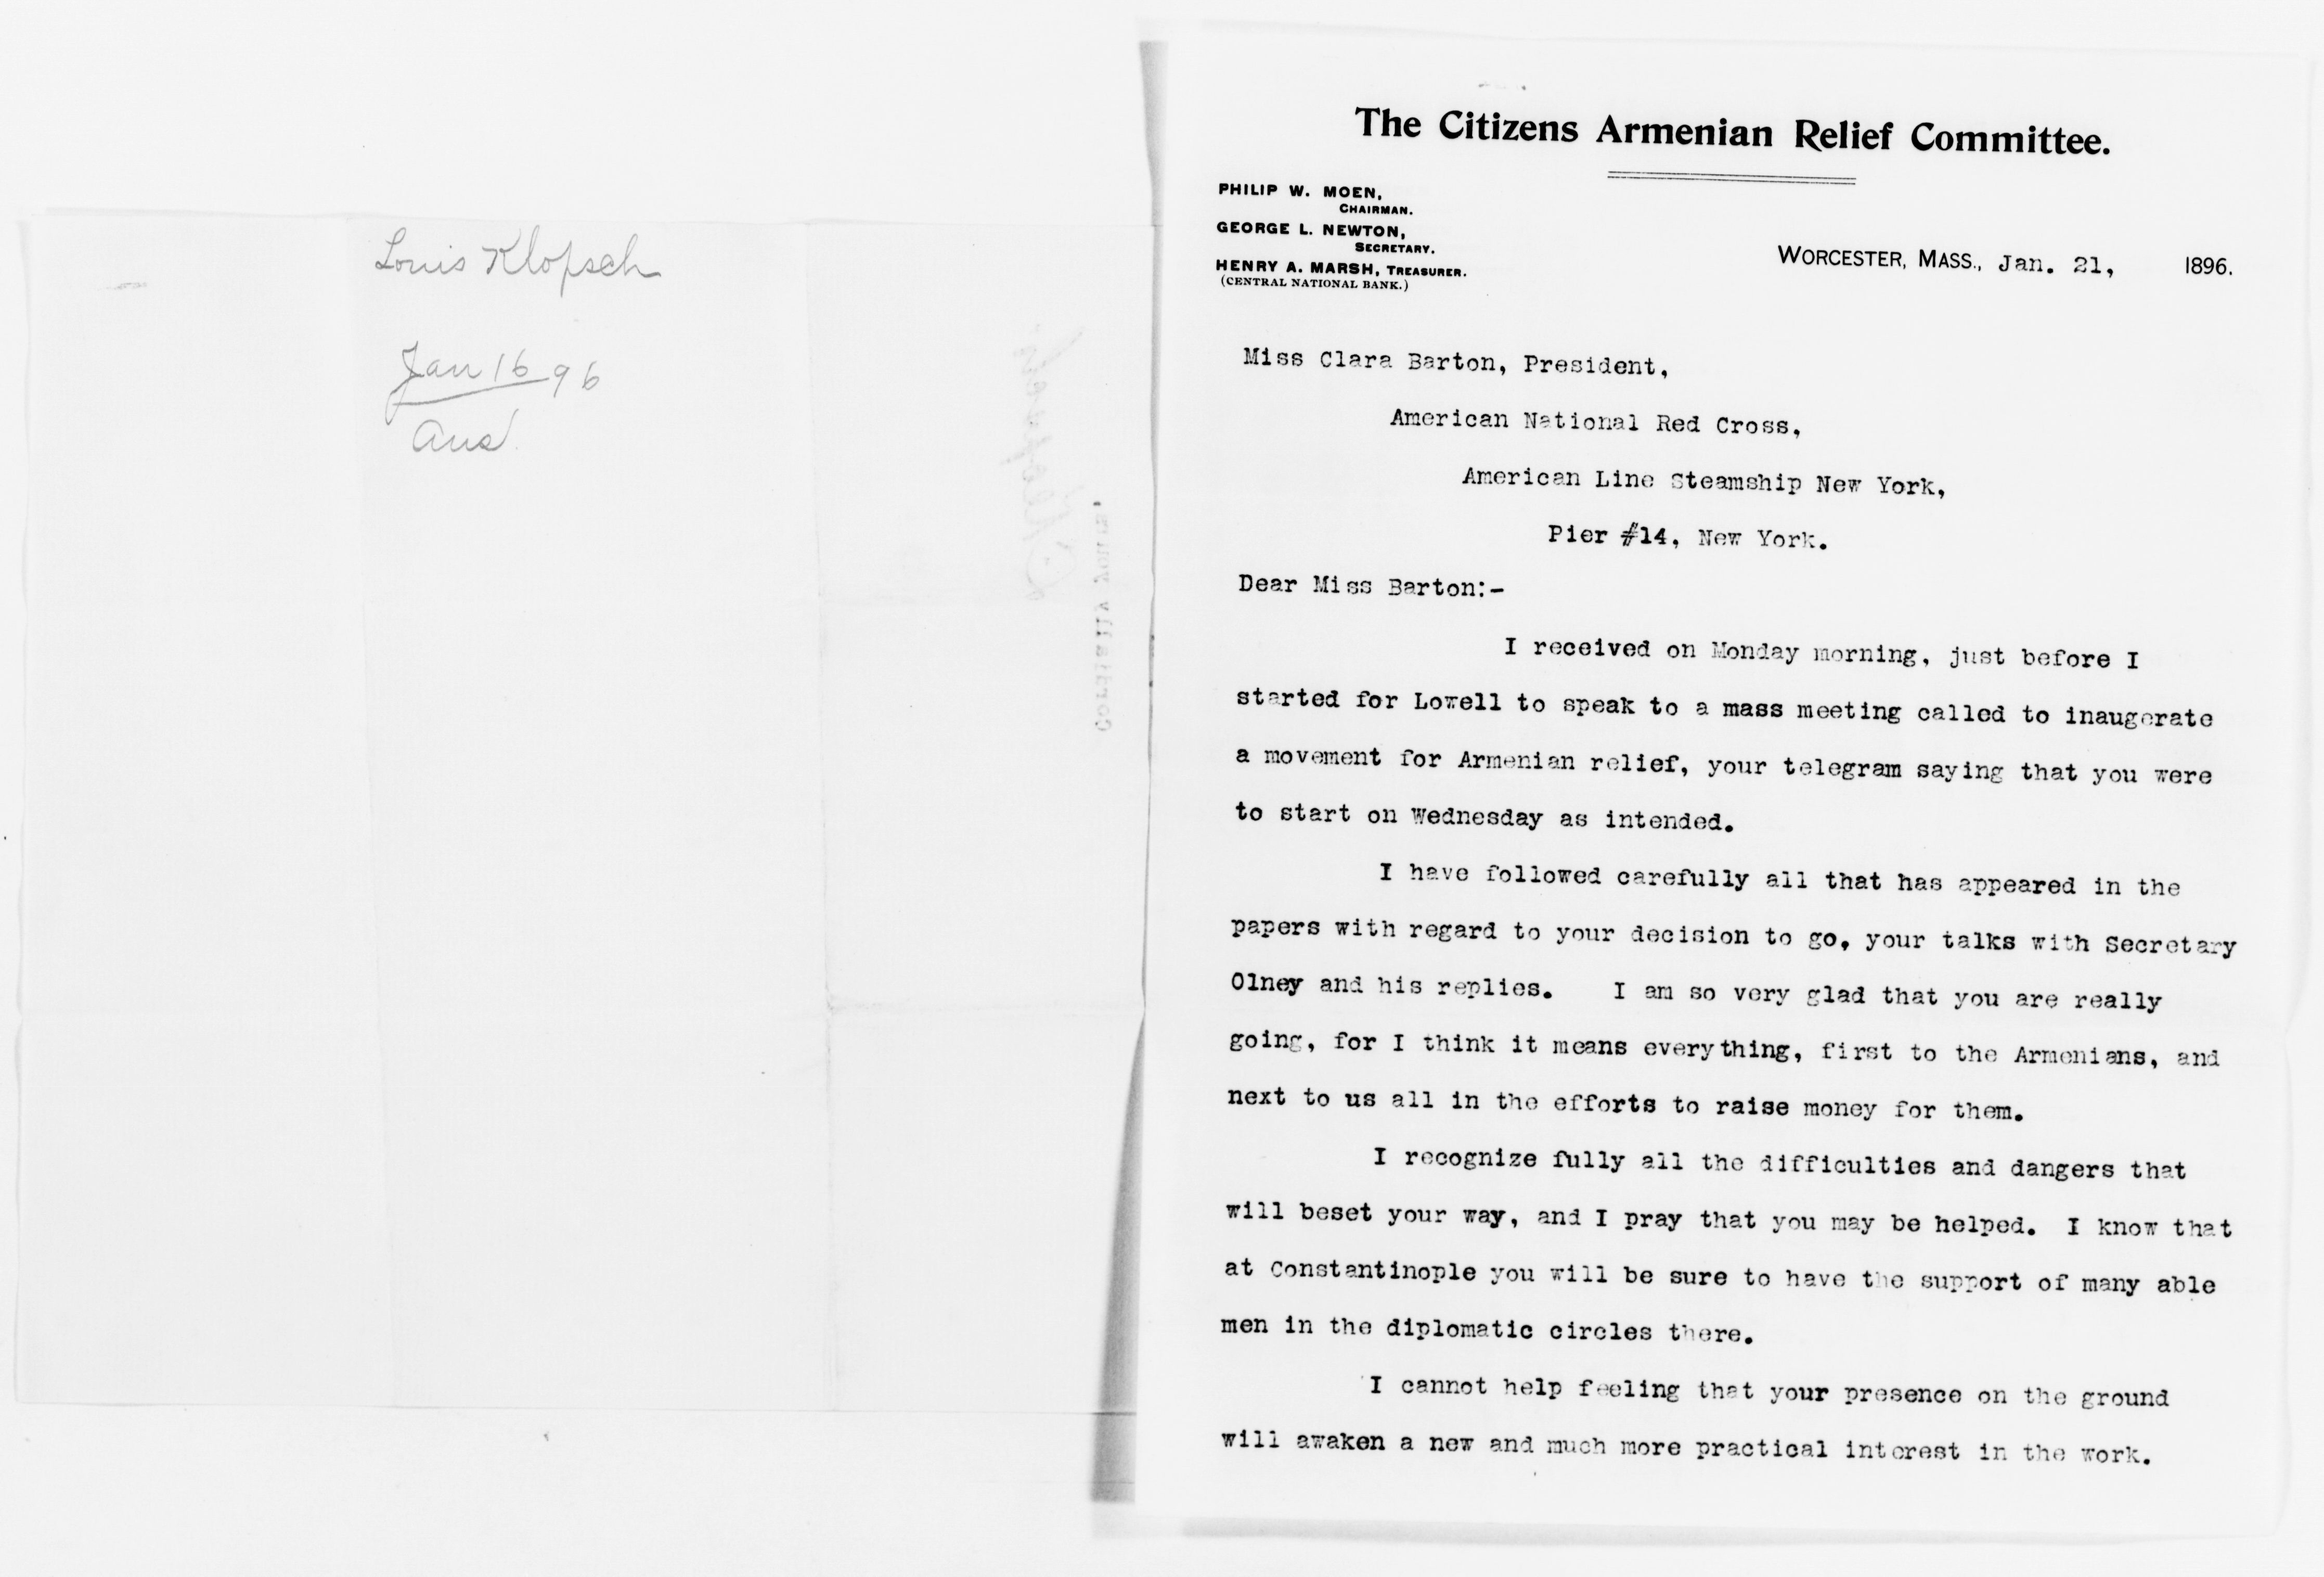 Louis Klopsch
Jan 16 96
Ans.
Cordially yours,
The Citizens Armenian Relief Committee.
PHILIP W. MOEN,
CHAIRMAN.
GEORGE L. NEWTON,
SECRETARY.
HENRY A. MARSH, TREASURER.
(CENTRAL NATIONAL BANK.)
WORCESTER, MASS., Jan. 21, 1896.
Miss Clara Barton, President,
American National Red Cross,
American Line Steamship New York,
Pier #14, New York.
Dear Miss Barton:-
I received on Monday morning, just before I
started for Lowell to speak to a mass meeting called to inaugerate
a movement for Armenian relief, your telegram saying that you were
to start on Wednesday as intended.
I have followed carefully all that has appeared in the
papers with regard to your decision to go, your talks with Secretary
Olney and his replies. I am so very glad that you are really
going, for I think it means everything, first to the Armenians, and
next to us all in the efforts to raise money for them.
I recognize fully all the difficulties and dangers that
will beset your way, and I pray that you may be helped. I know that
at Constantinople you will be sure to have the support of many able
men in the diplomatic circles there.
I cannot help feeling that your presence on the ground
will awaken a new and much more practical interest in the work.